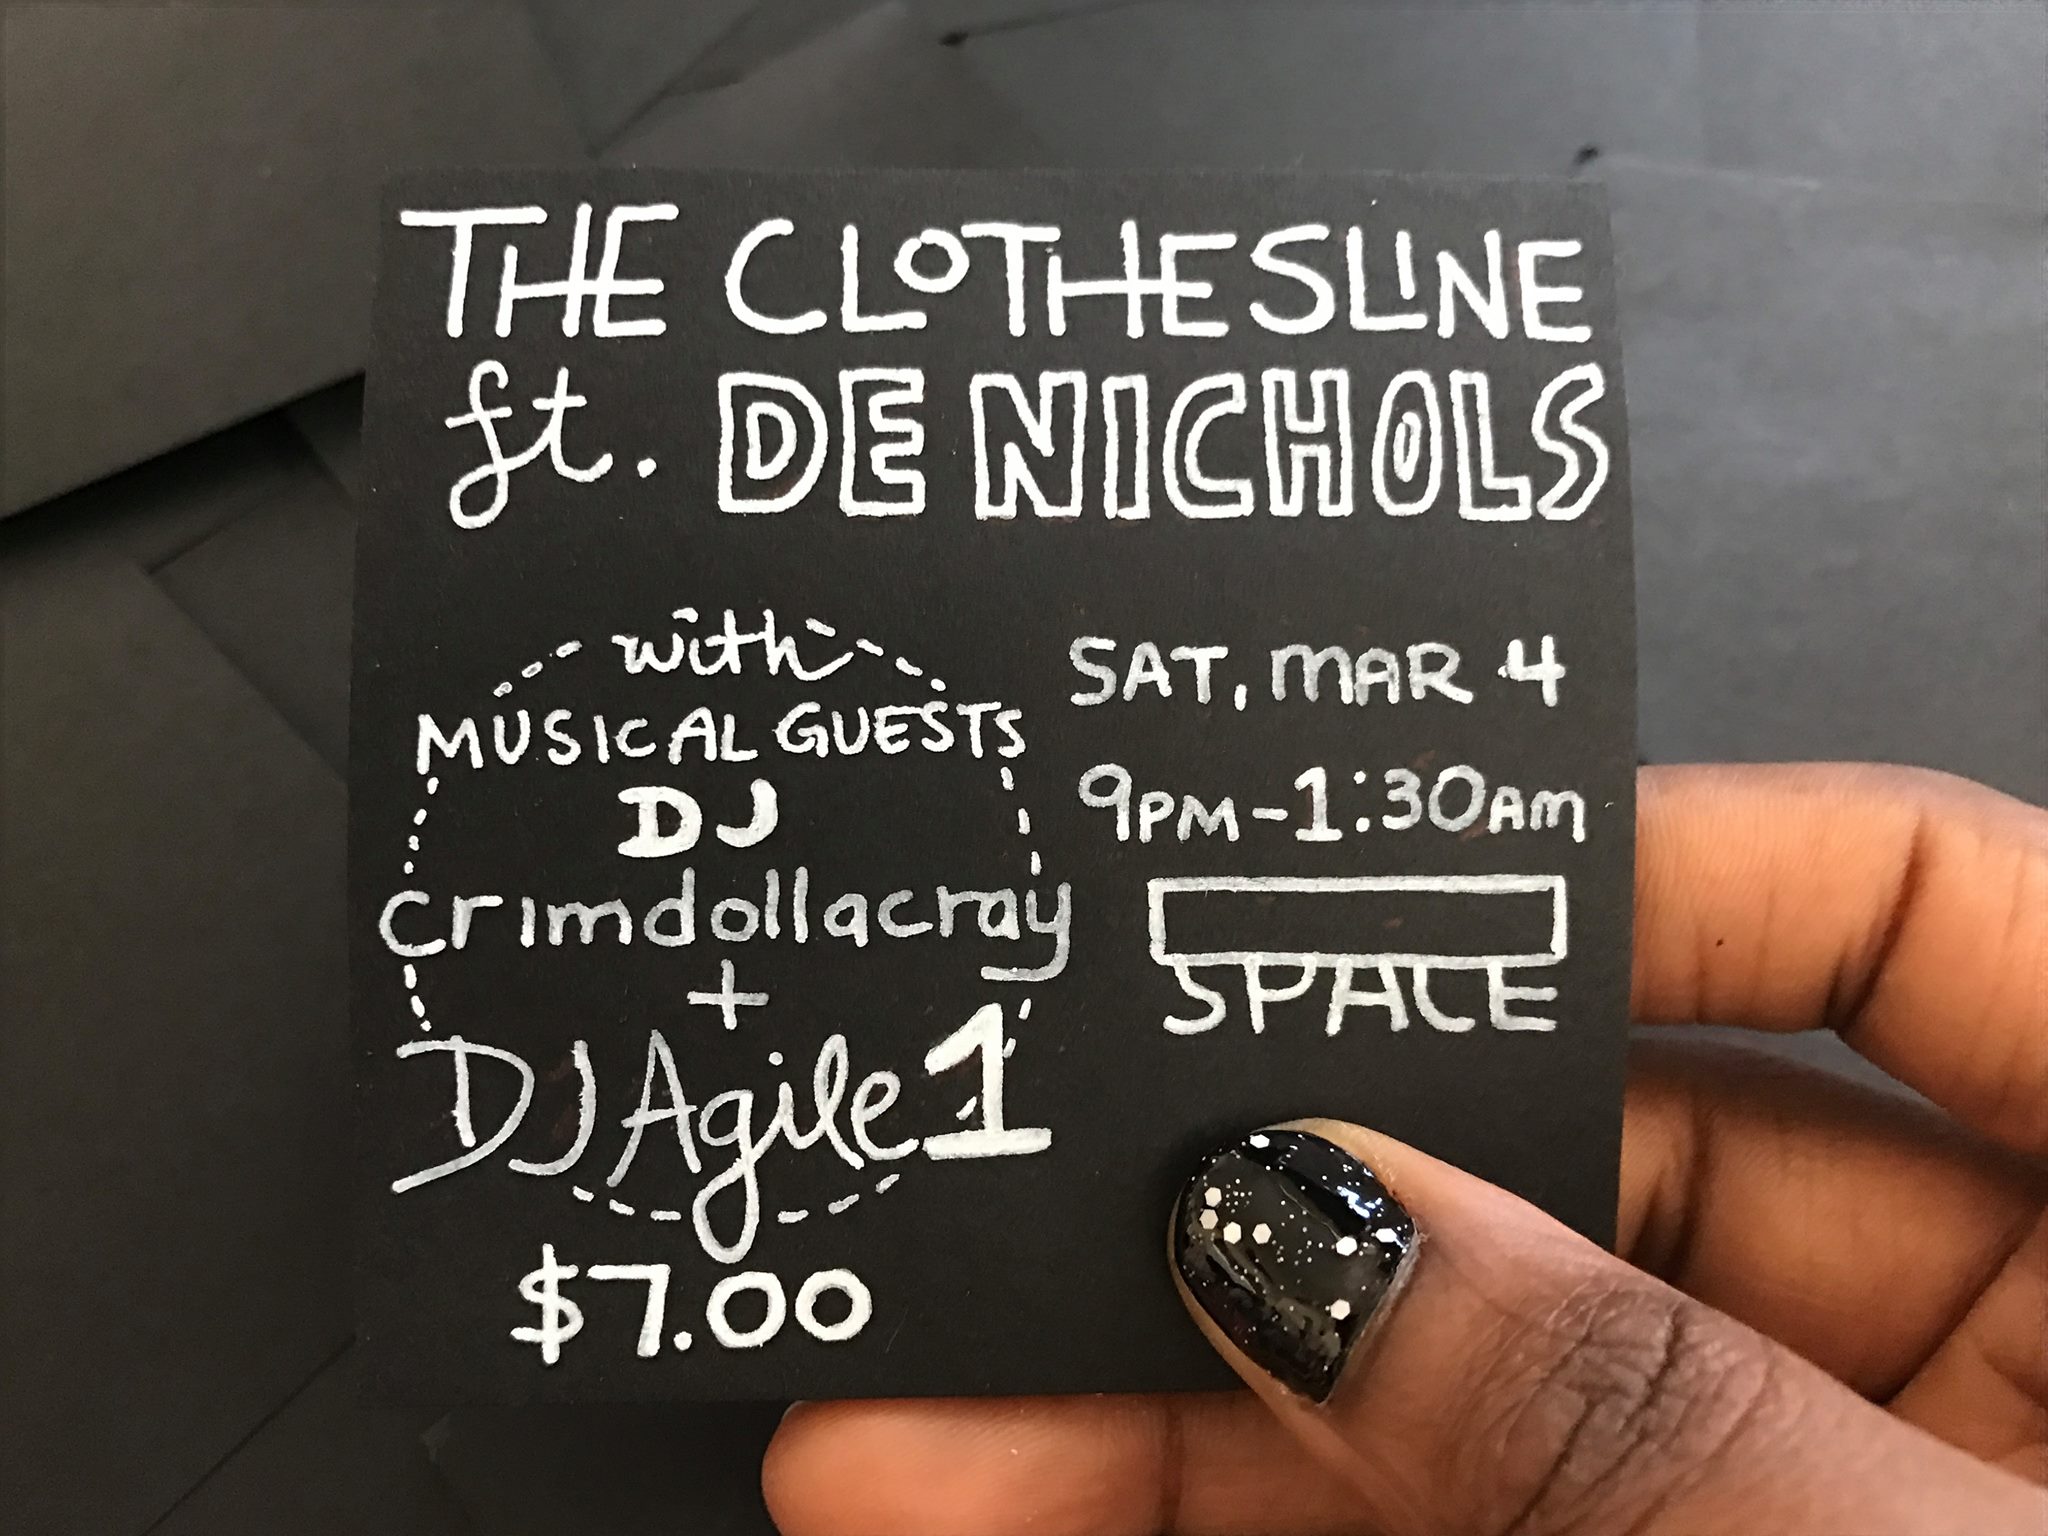 THE CLOTHESLINE
ft. DE NICHOLS
with
MUSICAL GUESTS
DJ
crimdollacray
+
DJ Agile 1
$7.00
SAT, MAR 4
9PM-1:30AM
SPACE